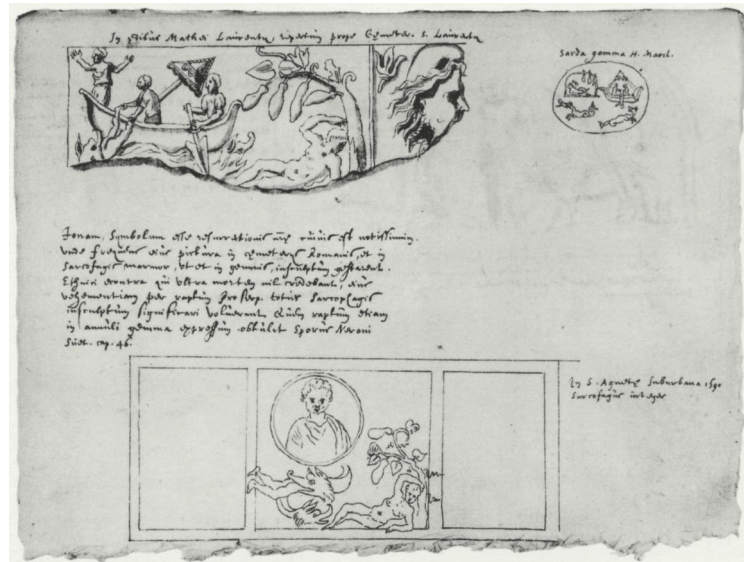 In ædibus Mathei Laurentij repertum prope Cœmeter. S. Laurentij
Sarda gemma H. Marel.
Ionam, Symbolum esse resurrectionis est notissimum.
vnde frequens eius pictura in cœmeterijs Romanis, et in
Sarcofagis marmor, vt et in gemmis, insculptum gestarent.
Ethnici econtra qui vltra mortem nil credebant, eius
vehementiam per raptum Proserp. totius Sarcophagis
insculptum significari voluerunt Quem raptum etiam
in annuli gemma expressum obtulit Sporus Neroni
Suet. cap. 46.
In S. Agnetis Suburbana 1590
Sarcofagus integer